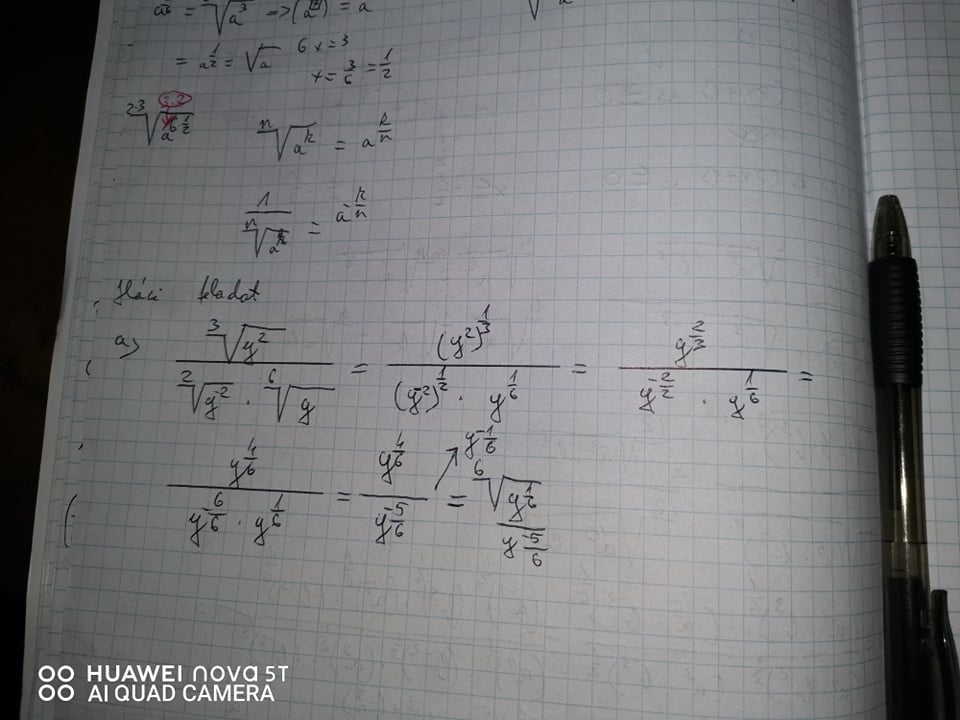 = ⁶√a³ => = a
= a^(1/2) = √a 6x=3
x = 3/6 = 1/2
2·3 √a
ⁿ√a^k = a^(k/n)
1/ⁿ√a^k = a^(-k/n)
Házi feladat
a) ³√y² / (²√y⁻² · ⁶√y) = (y²)^(1/3) / ((y⁻²)^(1/2) · y^(1/6)) = y^(2/3) / (y^(-2/2) · y^(1/6)) =
y^(4/6) / (y^(-6/6) · y^(1/6)) = y^(4/6) / y^(-5/6) y^(-1/6) = ⁶√y^(1/6) / y^(-5/6)
HUAWEI nova 5T
AI QUAD CAMERA